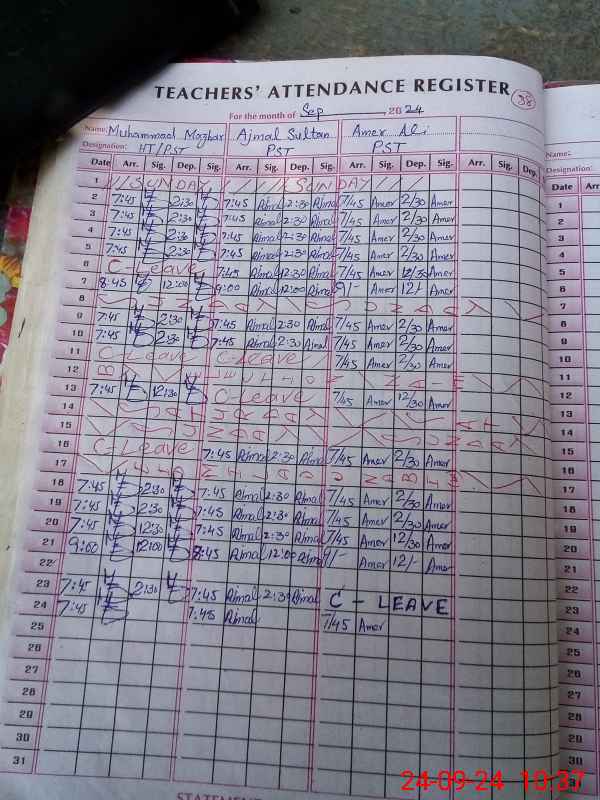 TEACHERS' ATTENDANCE REGISTER 38
For the month of Sep 2024
Name: Muhammad Mazhar Ajmal Sultan Amer Ali
Designation: HT/PST PST PST
Date Arr. Sig. Dep. Sig. Arr. Sig. Dep. Sig. Arr. Sig. Dep. Sig. Arr. Sig. Dep.
1 SUNDAY SUNDAY
2 7:45 2:30 7:45 Ajmal 2:30 Ajmal 7/45 Amer 2/30 Amer
3 7:45 2:30 7:45 Ajmal 2:30 Ajmal 7/45 Amer 2/30 Amer
4 7:45 2:30 7:45 Ajmal 2:30 Ajmal 7/45 Amer 2/30 Amer
5 7:45 2:30 7:45 Ajmal 2:30 Ajmal 7/45 Amer 2/30 Amer
6 C-Leave 7:45 Ajmal 12:30 Ajmal 7/45 Amer 12/30 Amer
7 8:45 12:00 9:00 Ajmal 12:00 Ajmal 9/- Amer 12/- Amer
8 SUNDAY SUNDAY
9 7:45 2:30 7:45 Ajmal 2:30 Ajmal 7/45 Amer 2/30 Amer
10 7:45 2:30 7:45 Ajmal 2:30 Ajmal 7/45 Amer 2/30 Amer
11 C-Leave C-Leave 7/45 Amer 2/30 Amer
12
13 7:45 12:30 C-Leave 7/45 Amer 12/30 Amer
14
15
16 C-Leave 7:45 Ajmal 2:30 Ajmal 7/45 Amer 2/30 Amer
17
18 7:45 2:30 7:45 Ajmal 2:30 Ajmal 7/45 Amer 2/30 Amer
19 7:45 2:30 7:45 Ajmal 2:30 Ajmal 7/45 Amer 2/30 Amer
20 7:45 12:30 7:45 Ajmal 2:30 Ajmal 7/45 Amer 12/30 Amer
21 9:00 12:00 8:45 Ajmal 12:00 Ajmal 9/- Amer 12/- Amer
22
23 7:45 2:30 7:45 Ajmal 2:30 Ajmal C - LEAVE
24 7:45 7:45 Ajmal 7/45 Amer
25
26
27
28
29
30
31
STATEMENT
Name:
Designation:
Date Arr.
1
2
3
4
5
6
7
8
9
10
11
12
13
14
15
16
17
18
19
20
21
22
23
24
25
26
27
28
29
30
24-09-24 10:37